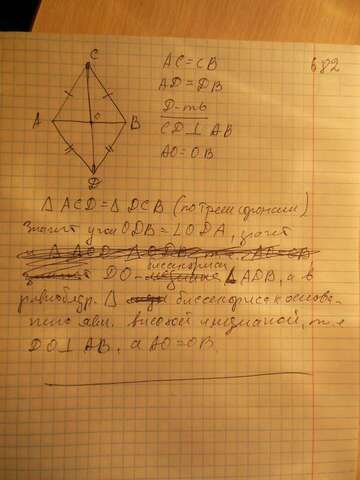 C
A
O
B
D
AC=CB
682
AD=DB
D-ть
CD⊥AB
AO=OB
Δ ACD=Δ DCB (по трем сторонам)
Значит угол ODB=∠ODA, значит
биссектриса
DO- Δ ADB, а в
равнобедр. Δ биссектриса к основа-
нию явл. высотой и медианой, т.е
DO⊥AB, а AO=OB.